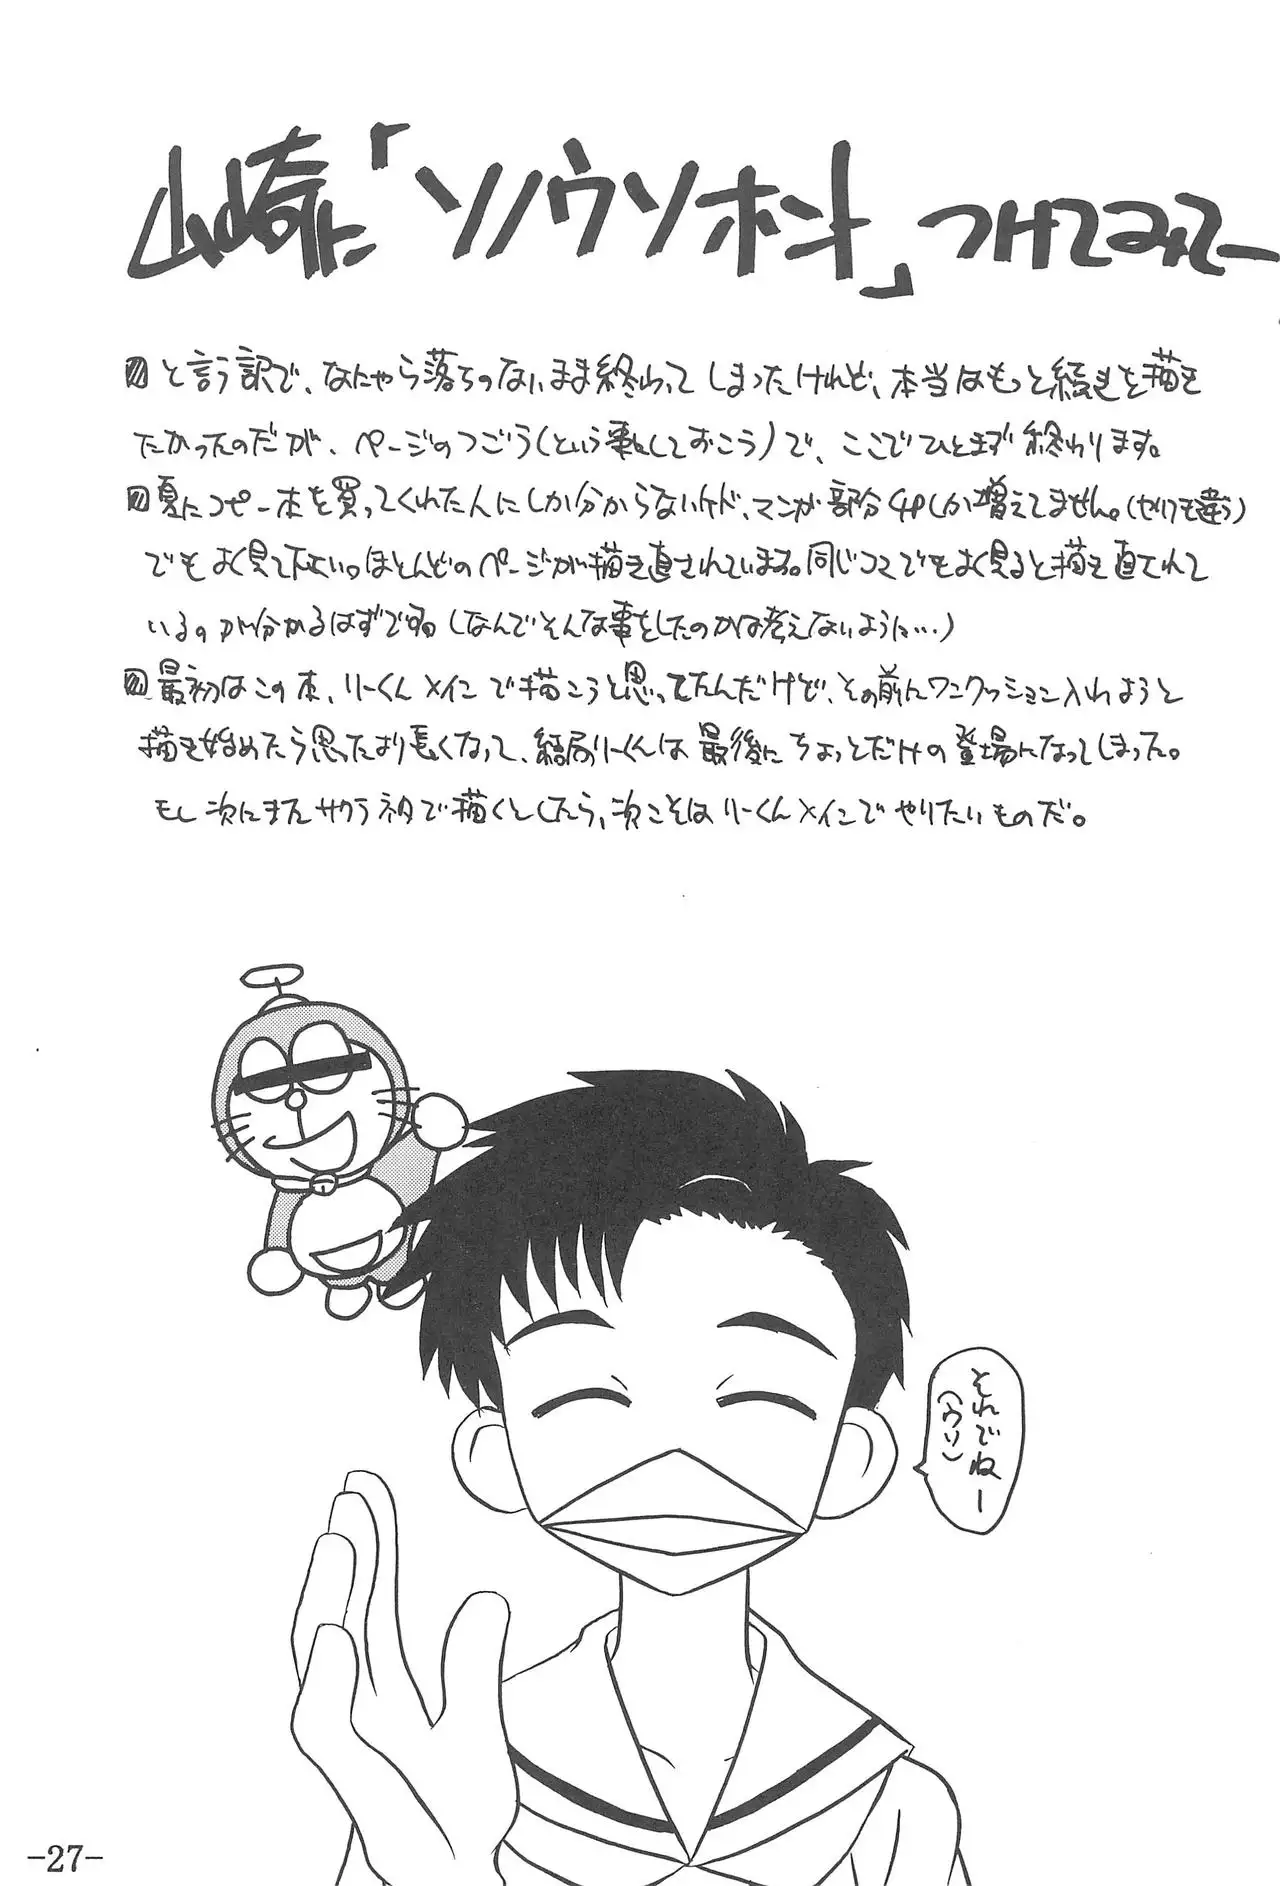 山崎に「ソノウソホント」つけてみてー
と言う訳で、なにやら落ちのないまま終わってしまったけれど、本当はもっと続きを描き
たかったのだが、ページのつごう(という事にしておこう)で、ここでひとまず終わります。
夏にコピー本を買ってくれた人にしか分からないケド、マンガ部分4Pしか増えてません。(セリフも違う)
でもよく見て下さい。ほとんどのページが描き直されています。同じコマでもよく見ると描き直されて
いるのが分かるはずです。(なんでそんな事をしたのかは考えないように…)
最初はこの本、リーくんメインで描こうと思ってたんだけど、その前にワンクッション入れようと
描き始めたら思ったより長くなって、結局リーくんは最後にちょっとだけの登場になってしまった。
もし次にまたサクラネタで描くとしたら、次こそはリーくんメインでやりたいものだ。
それでねー
(ウソ)
-27-